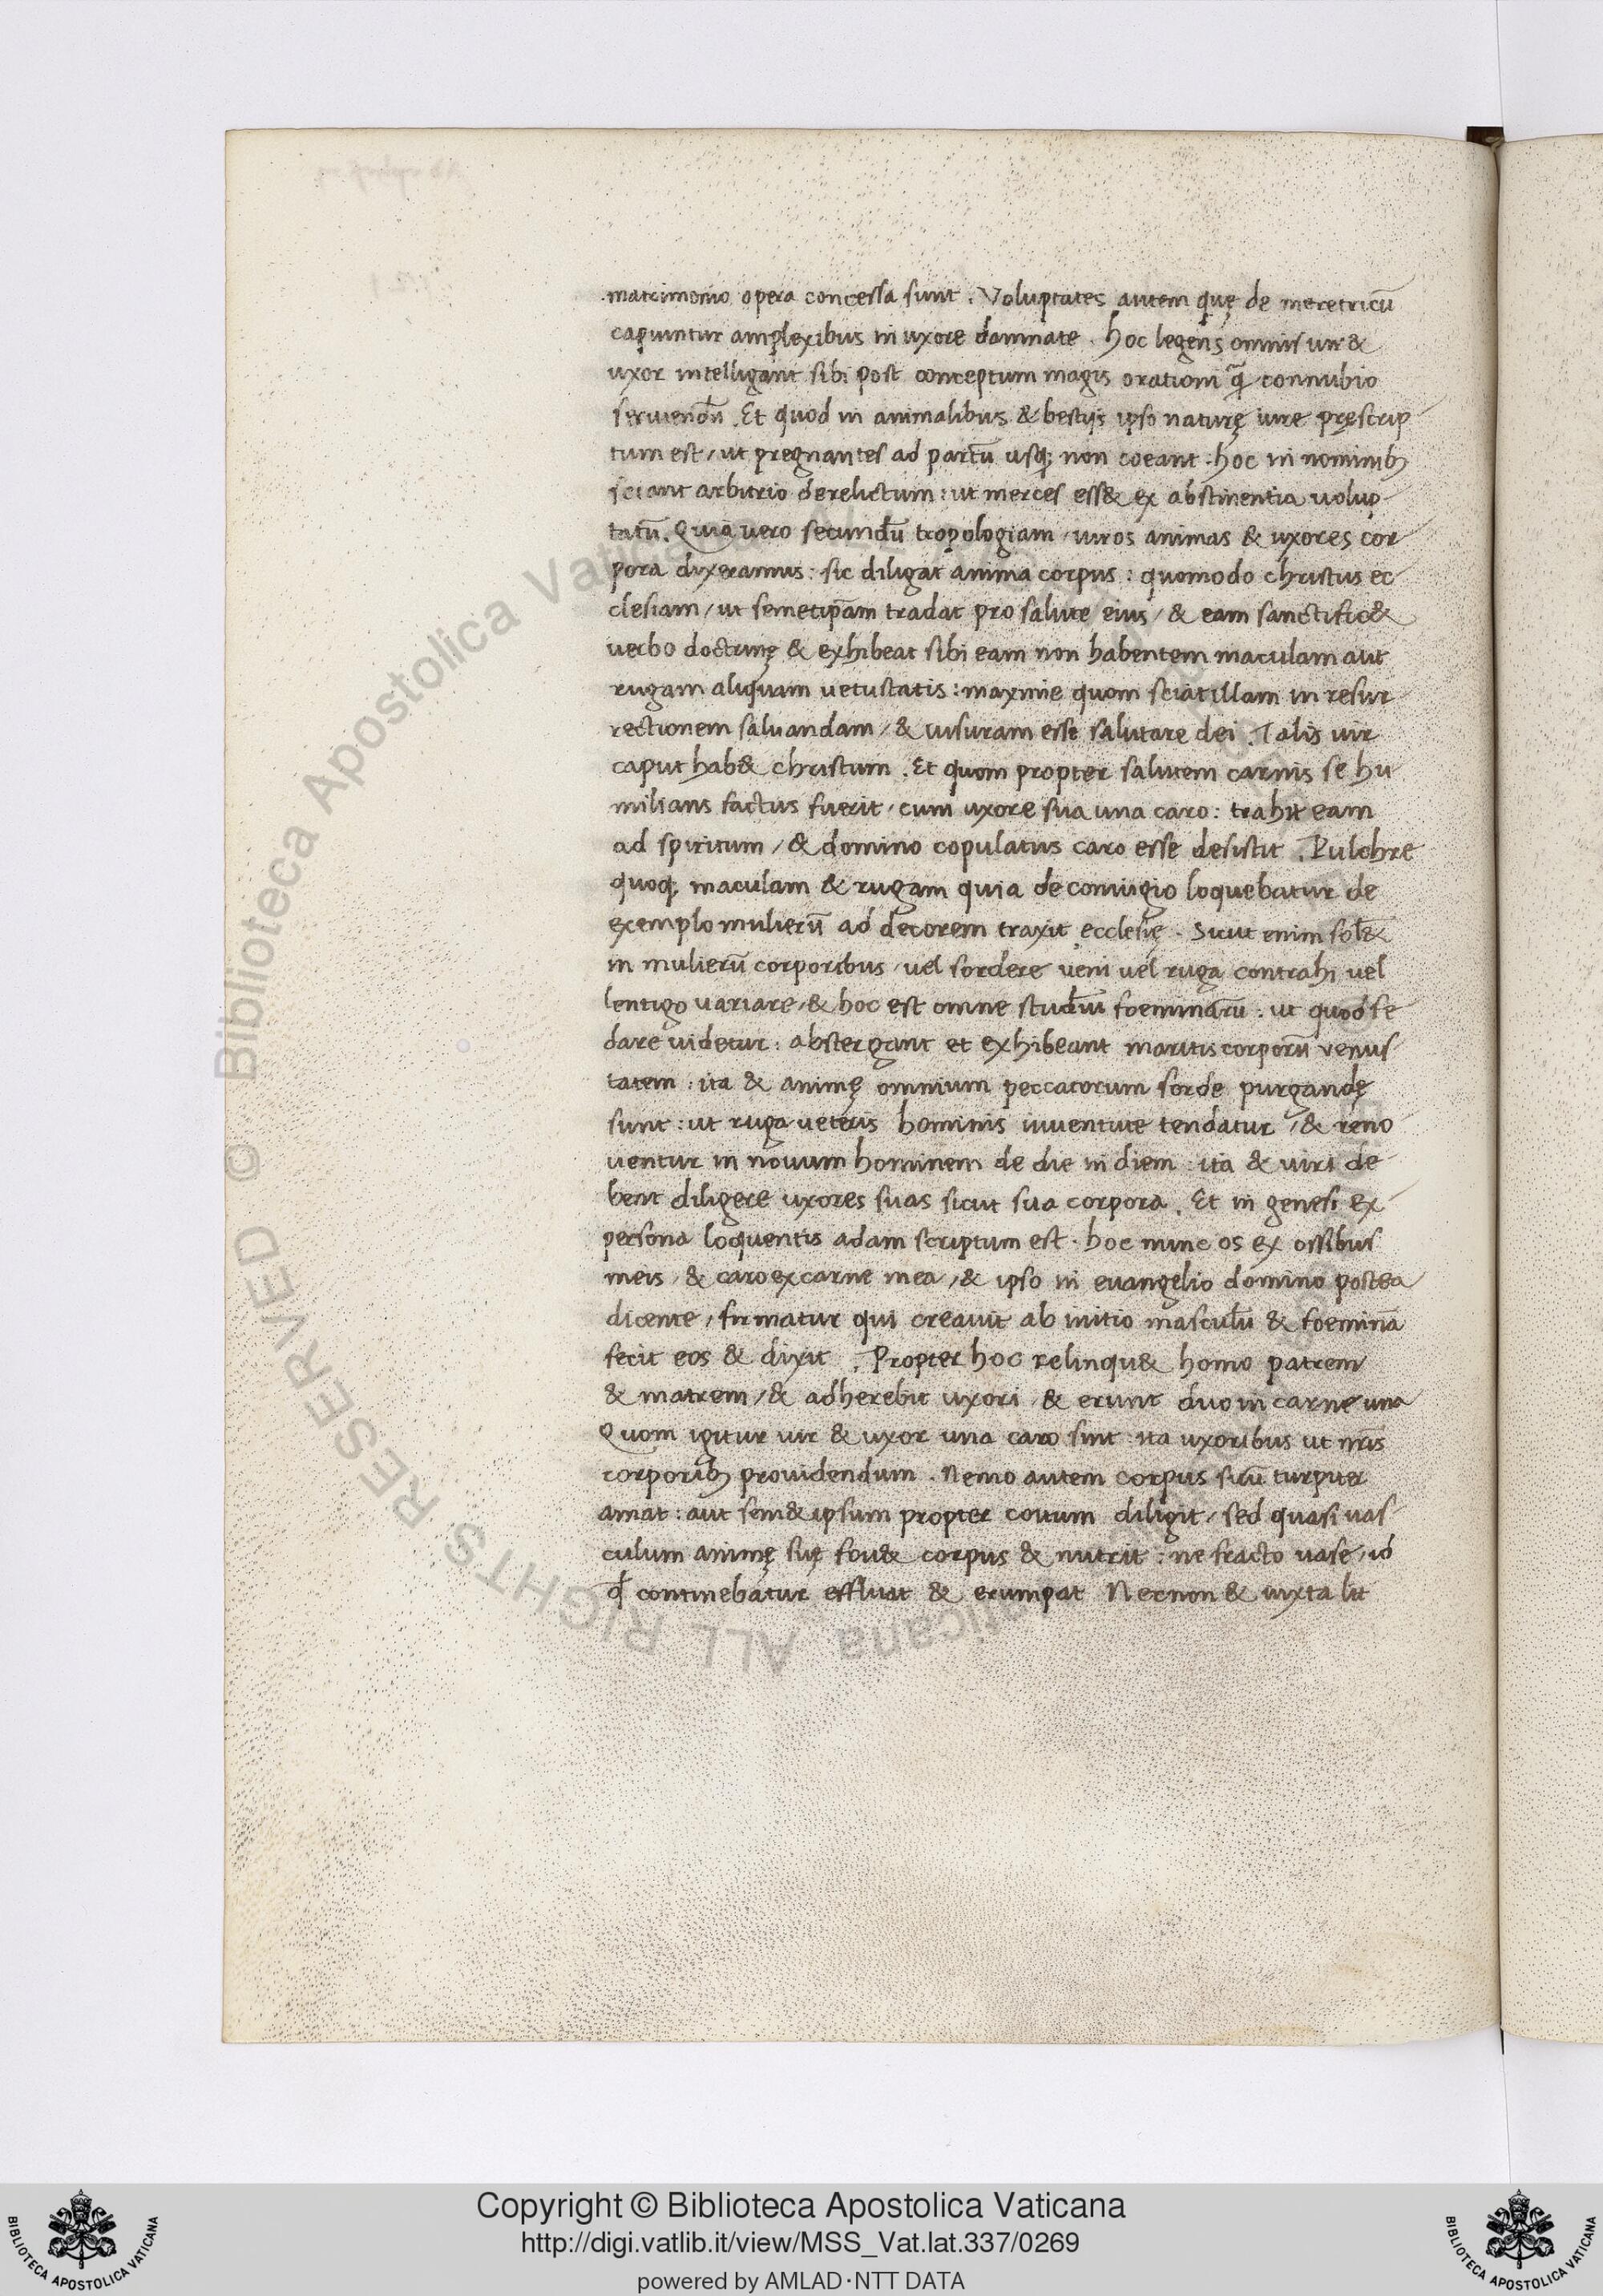 matrimonio opera concessa sunt. Voluptates autem quę de meretricū
capiuntur amplexibus in uxore damnate. hoc legens omnis uir &
uxor intelligant sibi post conceptum magis orationi ꝙ̃ connubio
seruiendū. Et quod in animalibus & bestijs ipso naturę iure pręscrip
tum est, ut pregnantes ad partū usq; non coeant. hoc in hominib;
sciant arbitrio derelictum: ut merces ess& ex abstinentia uolup
tatū. Quia uero secundū tropologiam, uiros animas & uxores cor
pora dixeramus: sic diligat anima corpus: quomodo christus ec
clesiam, ut semetip̄am tradat pro salute eius, & eam sanctific&
uerbo doctrinę & exhibeat sibi eam non habentem maculam aut
rugam aliquam uetustatis: maxime quom sciat illam in resur
rectionem saluandam, & uisuram esse salutare dei. Talis uir
caput hab& christum. Et quom propter salutem carnis se hu
milians factus fuerit, cum uxore sua una caro: trahit eam
ad spiritum, & domino copulatus caro esse desistit. Pulchre
quoq; maculam & rugam quia de coniugio loquebatur de
exemplo mulierū ad decorem traxit ecclesię. Sicut enim sol&
in mulierū corporibus, uel sordere ueni uel ruga contrahi uel
lentigo uariare, & hoc est omne studiū foeminarū: ut quod fe
dare uidetur: abstergant et exhibeant maritis corporū venus
tatem: ita & animę omnium peccatorum sorde purgandę
sunt: ut ruga ueteris hominis iuuentute tendatur, & reno
uentur in nouum hominem de die in diem: ita & uiri de
bent diligere uxores suas sicut sua corpora. Et in genesi ex
persona loquentis adam scriptum est. hoc nunc os ex ossibus
meis, & caro ex carne mea, & ipso in euangelio domino postea
dicente, firmatur qui creauit ab initio masculū & foeminā
fecit eos & dixit. Propter hoc relinqu& homo patrem
& matrem, & adherebit uxori, & erunt duo in carne una
Quom igitur uir & uxor una caro sint: ita uxoribus ut nr̄is
corporib; prouidendum. Nemo autem corpus suū turpiter
amat: aut sem&ipsum propter coitum diligit, sed quasi uas
culum animę suę fou& corpus & nutrit: ne fracto uase, id
qđ continebatur effluat & erumpat Necnon & iuxta lit
© Biblioteca Apostolica Vaticana ALL RIGHTS RESERVED
Copyright © Biblioteca Apostolica Vaticana
http://digi.vatlib.it/view/MSS_Vat.lat.337/0269
powered by AMLAD·NTT DATA
BIBLIOTECA APOSTOLICA VATICANA
BIBLIOTECA APOSTOLICA VATICANA